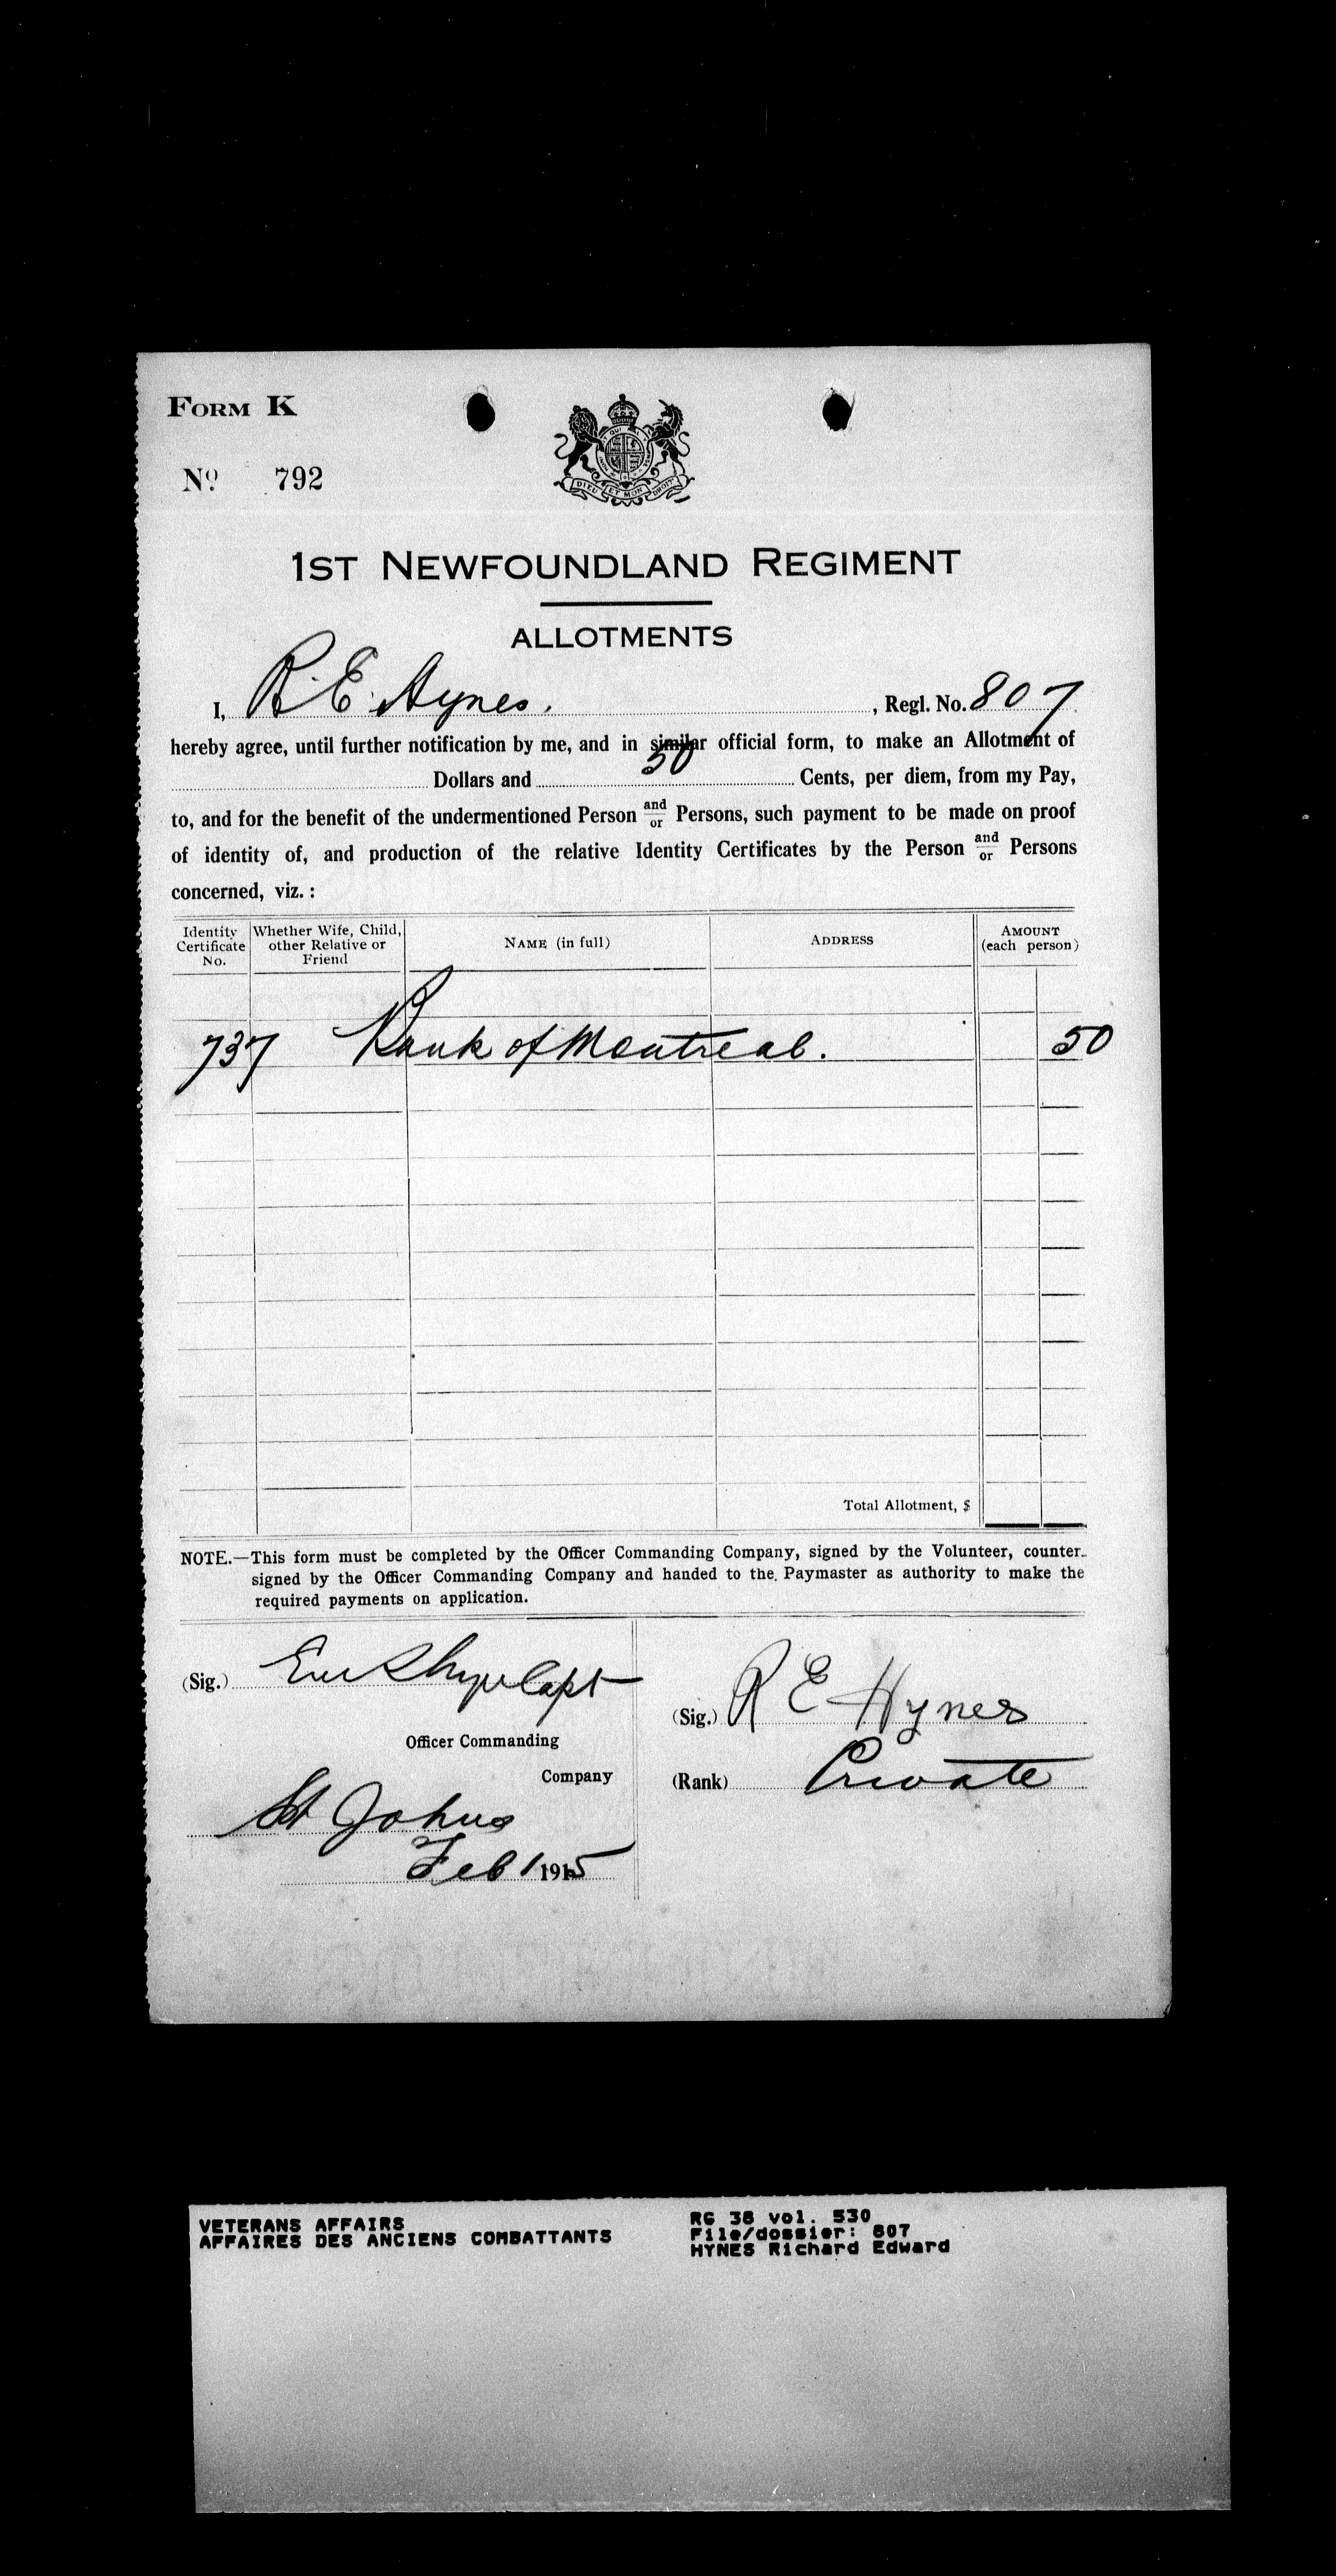 FORM K
No. 792
DIEU ET MON DROIT
1ST NEWFOUNDLAND REGIMENT
ALLOTMENTS
I, R. E. Hynes. , Regl. No. 807
hereby agree, until further notification by me, and in similar official form, to make an Allotment of
Dollars and 50 Cents, per diem, from my Pay,
to, and for the benefit of the undermentioned Person and/or Persons, such payment to be made on proof
of identity of, and production of the relative Identity Certificates by the Person and/or Persons
concerned, viz. :
Identity Certificate No. Whether Wife, Child, other Relative or Friend NAME (in full) ADDRESS AMOUNT (each person)
737 Bank of Montreal. 50
Total Allotment, $
NOTE.—This form must be completed by the Officer Commanding Company, signed by the Volunteer, counter-
signed by the Officer Commanding Company and handed to the Paymaster as authority to make the
required payments on application.
(Sig.) Capt
Officer Commanding
Company
St Johns
Feb 1 1915
(Sig.) R E Hynes
(Rank) Private
VETERANS AFFAIRS
AFFAIRES DES ANCIENS COMBATTANTS
RG 38 vol. 530
File/dossier: 807
HYNES Richard Edward